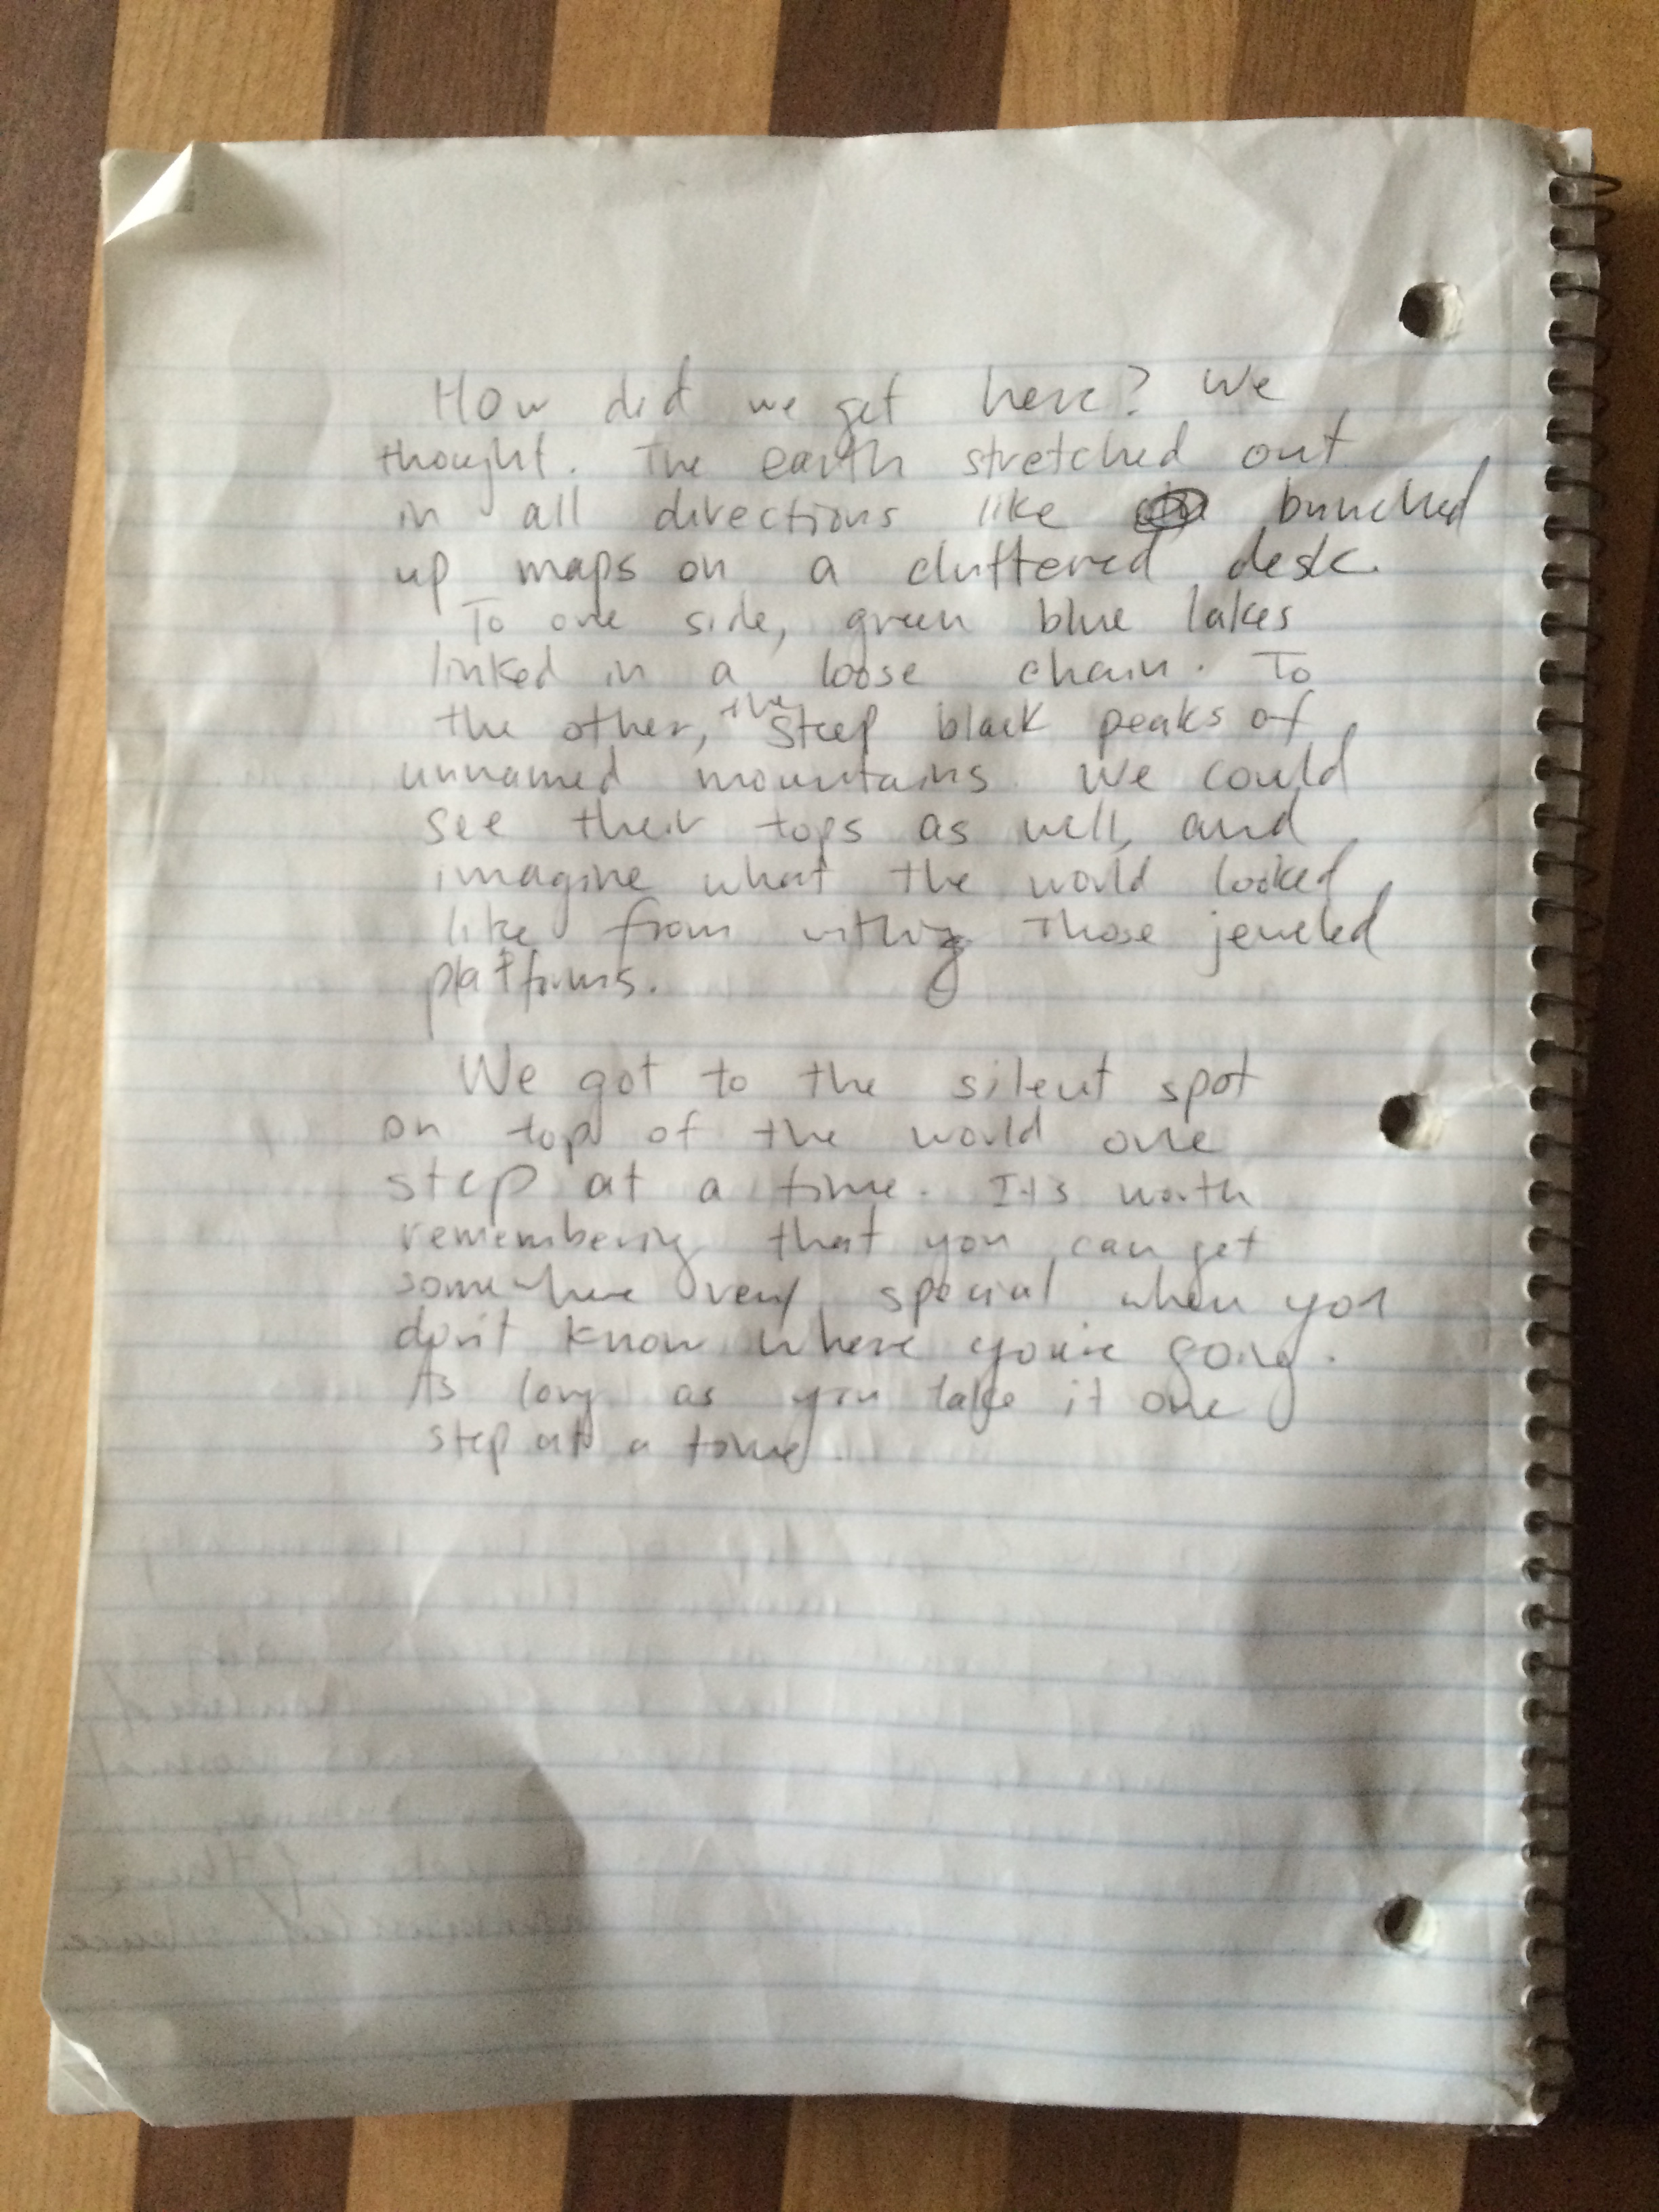 How did we get here? We
thought. The earth stretched out
in all directions like bunched
up maps on a cluttered desk.
To one side, green blue lakes
linked in a loose chain. To
the other, the steep black peaks of
unnamed mountains. We could
see their tops as well, and
imagine what the world looked
like from those jeweled
platforms.
We got to the silent spot
on top of the world one
step at a time. It's worth
remembering that you can get
somewhere very special when you
don't know where you're going.
As long as you take it one
step at a time.